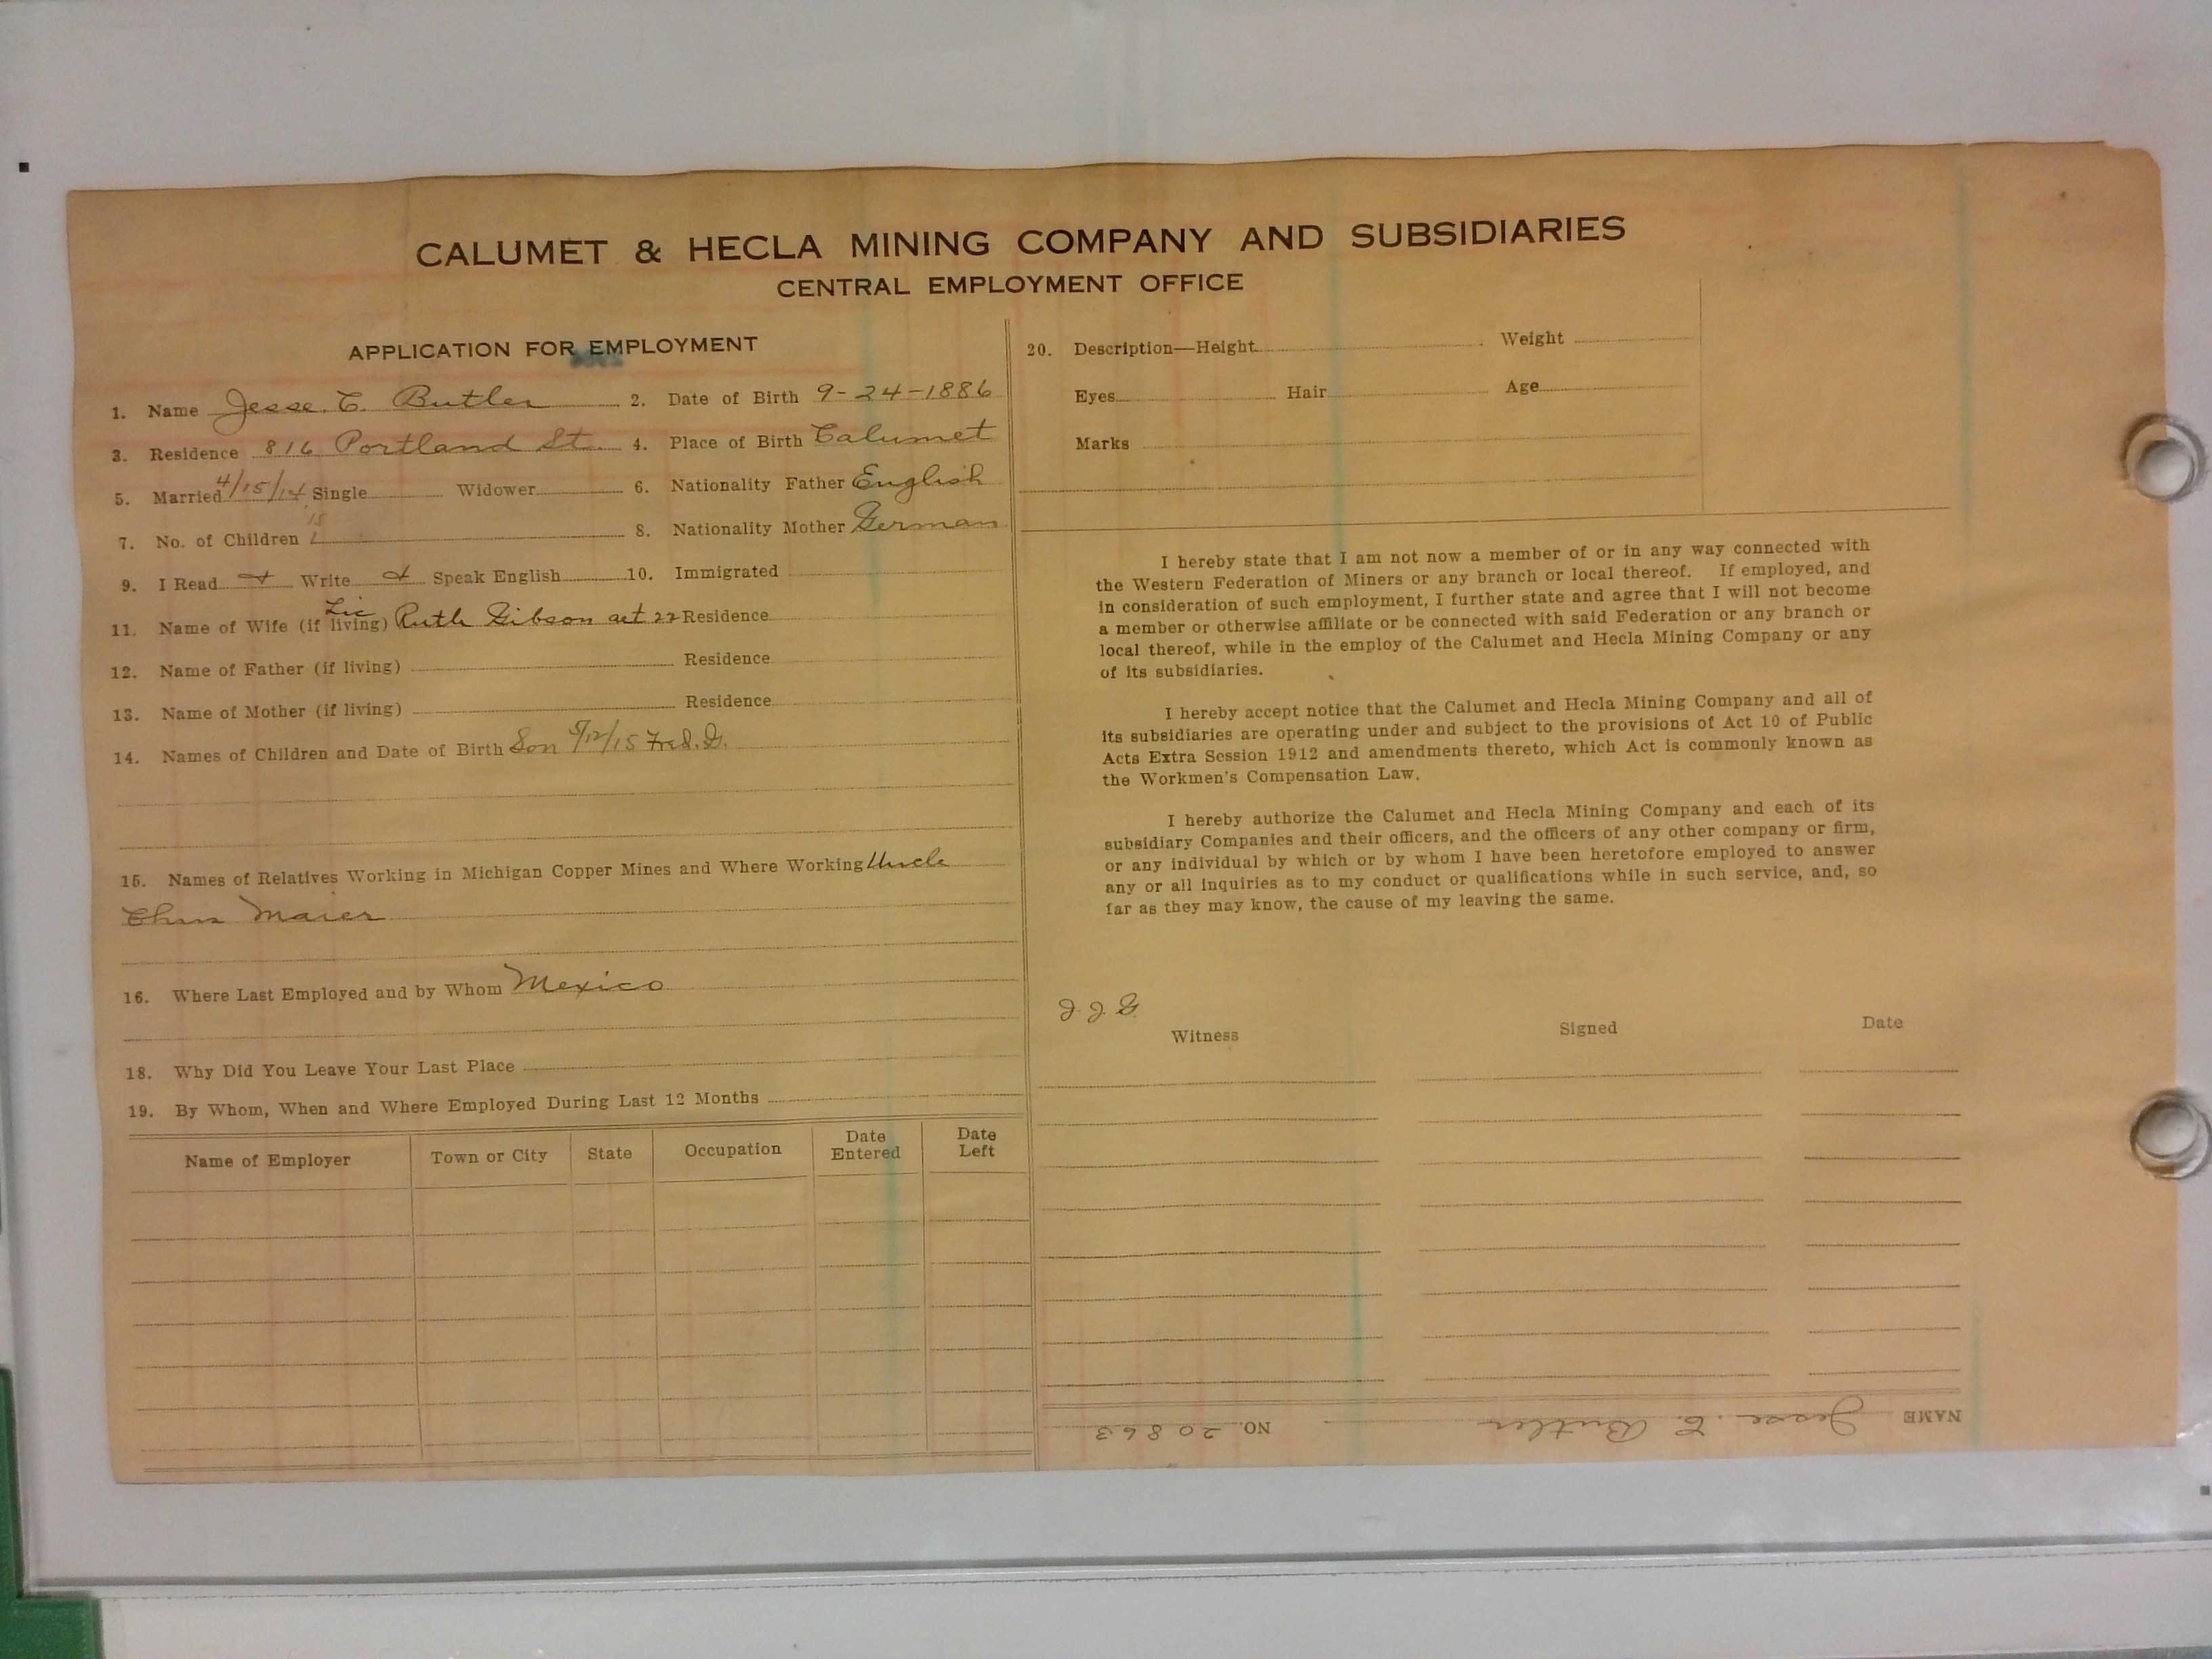 CALUMET & HECLA MINING COMPANY AND SUBSIDIARIES
CENTRAL EMPLOYMENT OFFICE
APPLICATION FOR EMPLOYMENT
1. Name Jesse. C. Butler 2. Date of Birth 9-24-1886
3. Residence 816 Portland St. 4. Place of Birth Calumet
5. Married 4/15/14 Single Widower 6. Nationality Father English
15
7. No. of Children 1 8. Nationality Mother German
9. I Read Write Speak English 10. Immigrated
Lic
11. Name of Wife (if living) Ruth Gibson aet 22 Residence
12. Name of Father (if living) Residence
13. Name of Mother (if living) Residence
14. Names of Children and Date of Birth Son /12/15 Fred. G.
15. Names of Relatives Working in Michigan Copper Mines and Where Working Uncle
Chris Maier
16. Where Last Employed and by Whom Mexico
18. Why Did You Leave Your Last Place
19. By Whom, When and Where Employed During Last 12 Months
Name of Employer Town or City State Occupation Date Entered Date Left
20. Description—Height Weight
Eyes Hair Age
Marks
I hereby state that I am not now a member of or in any way connected with
the Western Federation of Miners or any branch or local thereof. If employed, and
in consideration of such employment, I further state and agree that I will not become
a member or otherwise affiliate or be connected with said Federation or any branch or
local thereof, while in the employ of the Calumet and Hecla Mining Company or any
of its subsidiaries.
I hereby accept notice that the Calumet and Hecla Mining Company and all of
its subsidiaries are operating under and subject to the provisions of Act 10 of Public
Acts Extra Session 1912 and amendments thereto, which Act is commonly known as
the Workmen's Compensation Law.
I hereby authorize the Calumet and Hecla Mining Company and each of its
subsidiary Companies and their officers, and the officers of any other company or firm,
or any individual by which or by whom I have been heretofore employed to answer
any or all inquiries as to my conduct or qualifications while in such service, and, so
far as they may know, the cause of my leaving the same.
J. J. G.
Witness Signed Date
NAME Jesse. C. Butler NO. 20863